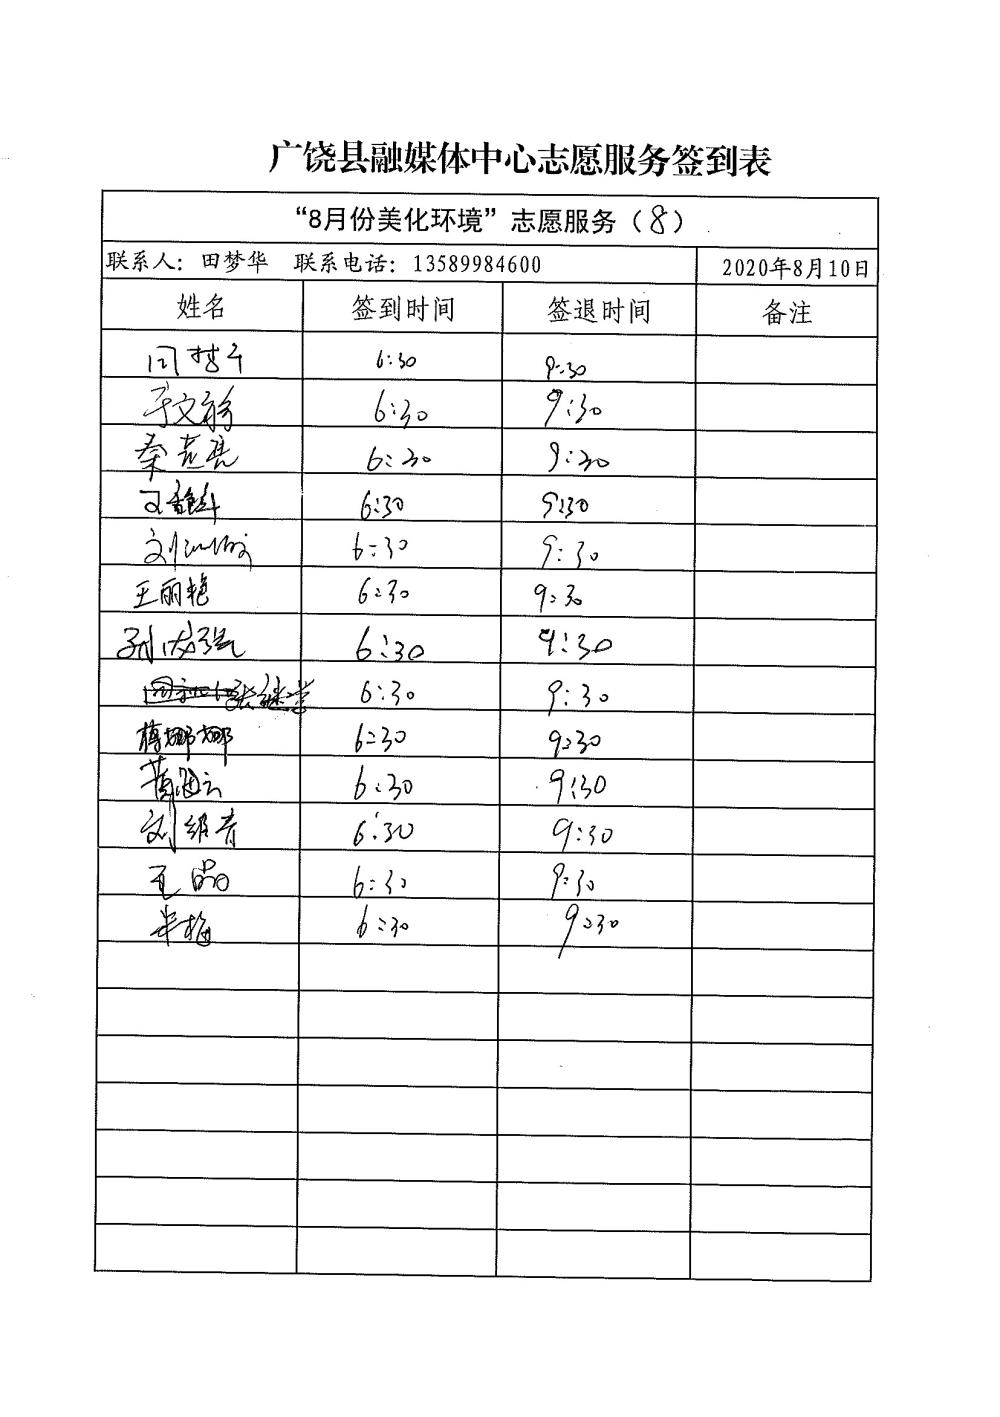 广饶县融媒体中心志愿服务签到表
“8月份美化环境”志愿服务（8）
联系人：田梦华 联系电话：13589984600 2020年8月10日
姓名 签到时间 签退时间 备注
6:30 9:30
6:30 9:30
秦燕亮 6:30 9:30
6:30 9:30
刘 6:30 9:30
王丽艳 6:30 9:30
孙 强 6:30 9:30
张继学 6:30 9:30
蒋娜娜 6:30 9:30
6:30 9:30
刘维青 6:30 9:30
王晶 6:30 9:30
梅 6:30 9:30